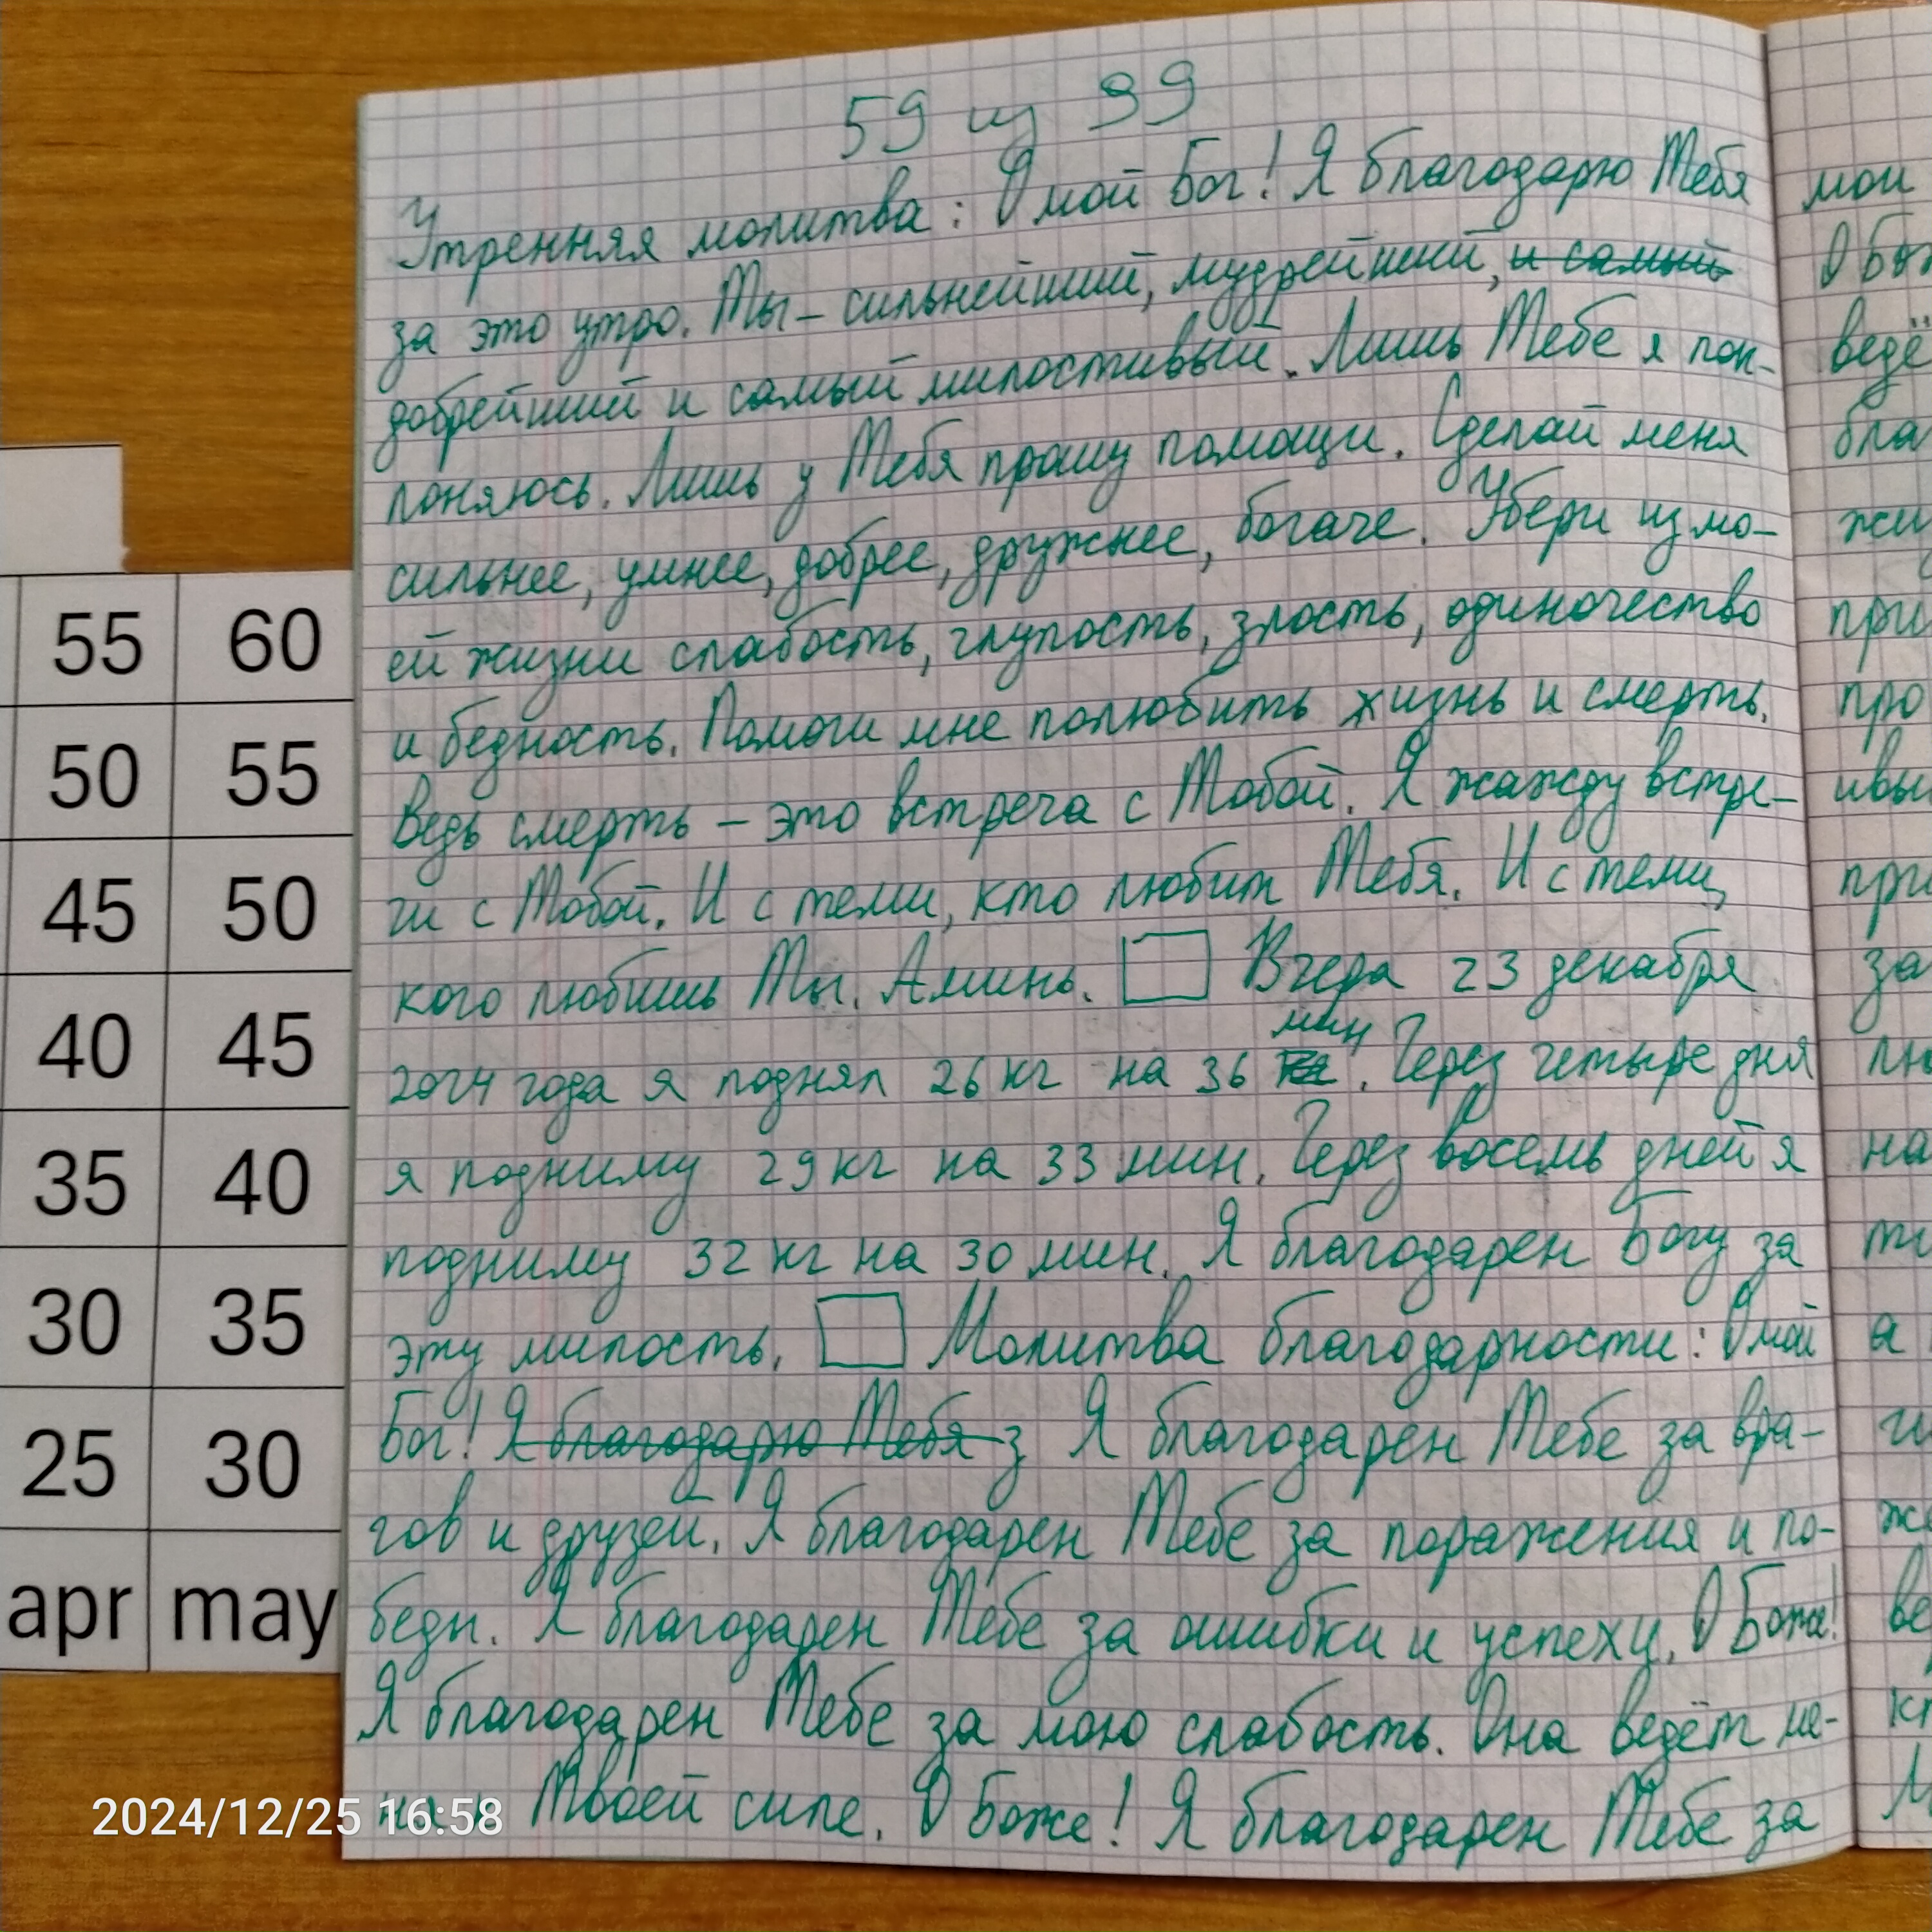 59 из 99
Утренняя молитва: О мой Бог! Я благодарю Тебя
за это утро. Ты – сильнейший, мудрейший, и самый
добрейший и самый милостивый. Лишь Тебе я пок-
лоняюсь. Лишь у Тебя прошу помощи. Сделай меня
сильнее, умнее, добрее, дружнее, богаче. Убери из мо-
ей жизни слабость, глупость, злость, одиночество
и бедность. Помоги мне полюбить жизнь и смерть.
Ведь смерть – это встреча с Тобой. Я жажду встре-
чи с Тобой. И с теми, кто любит Тебя. И с теми,
кого любишь Ты. Аминь. Вчера 23 декабря
2024 года я поднял 26 кг на 36 мин. Через четыре дня
я подниму 29 кг на 33 мин. Через восемь дней я
подниму 32 кг на 30 мин. Я благодарен Богу за
эту милость. Молитва благодарности: О мой
Бог! Я благодарю Тебя з Я благодарен Тебе за вра-
гов и друзей. Я благодарен Тебе за поражения и по-
беды. Я благодарен Тебе за ошибки и успехи. О Боже!
Я благодарен Тебе за мою слабость. Она ведёт ме-
ня к Твоей силе. О Боже! Я благодарен Тебе за
55 60
50 55
45 50
40 45
35 40
30 35
25 30
apr may
2024/12/25 16:58
мои
О Бож
ведё
бла
жи
при
про
ивы
при
за
лю
на
ти
а
ги
же
ве
кр
М